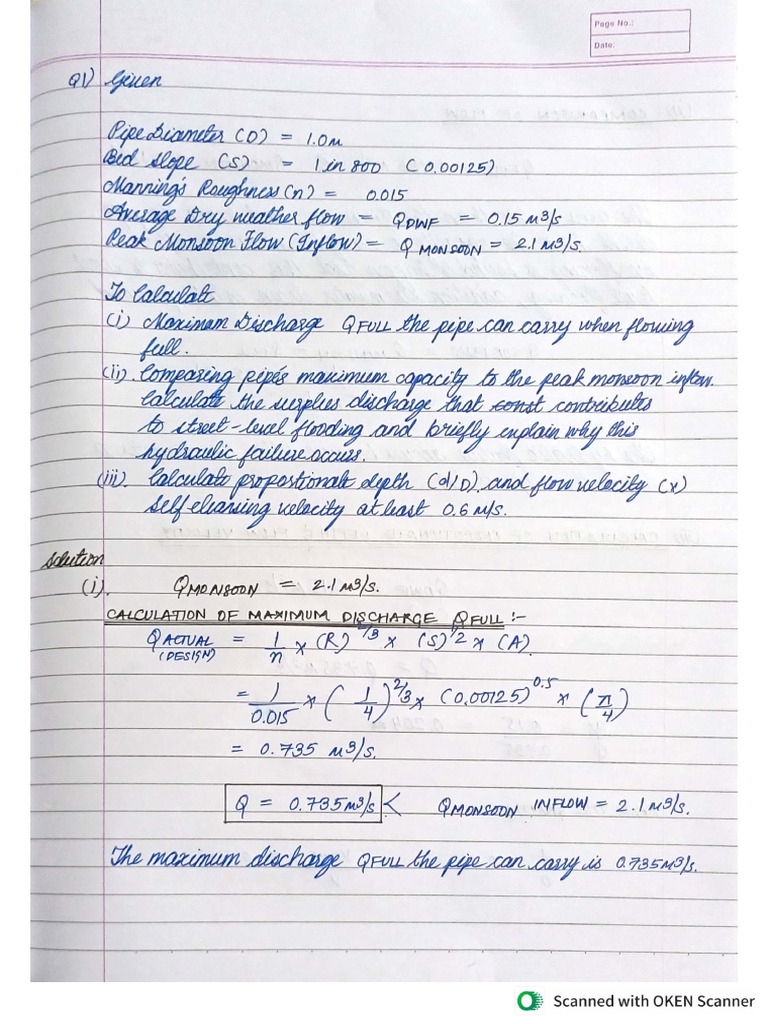 Page No.:
Date:
Q1) Given
Pipe Diameter (D) = 1.0m
Bed slope (S) = 1 in 800 (0.00125)
Manning's Roughness (n) = 0.015
Average Dry weather flow = QDWF = 0.15 m3/s
Peak Monsoon Flow (Inflow) = QMONSOON = 2.1 m3/s.
To Calculate
(i) Maximam Discharge QFULL the pipe can carry when flowing
full.
(ii). Comparing pipe's maximum capacity to the peak monsoon inflow.
Calculate the surplus discharge that const contributes
to street-level flooding and briefly explain why this
hydraulic failure occurs.
(iii). Calculate proportionate depth (d/D), and flow velocity (v)
self cleansing velocity at least 0.6 m/s.
Solution
(i). QMONSOON = 2.1 m3/s.
CALCULATION OF MAXIMUM DISCHARGE QFULL :-
QACTUAL = 1/n × (R)^2/3 × (S)^1/2 × (A)
(DESIGN)
= 1/0.015 × (1/4)^2/3 × (0.00125)^0.5 × (π/4)
= 0.735 m3/s.
Q = 0.735 m3/s < QMONSOON INFLOW = 2.1 m3/s.
The maximum discharge QFULL the pipe can carry is 0.735 m3/s.
Scanned with OKEN Scanner